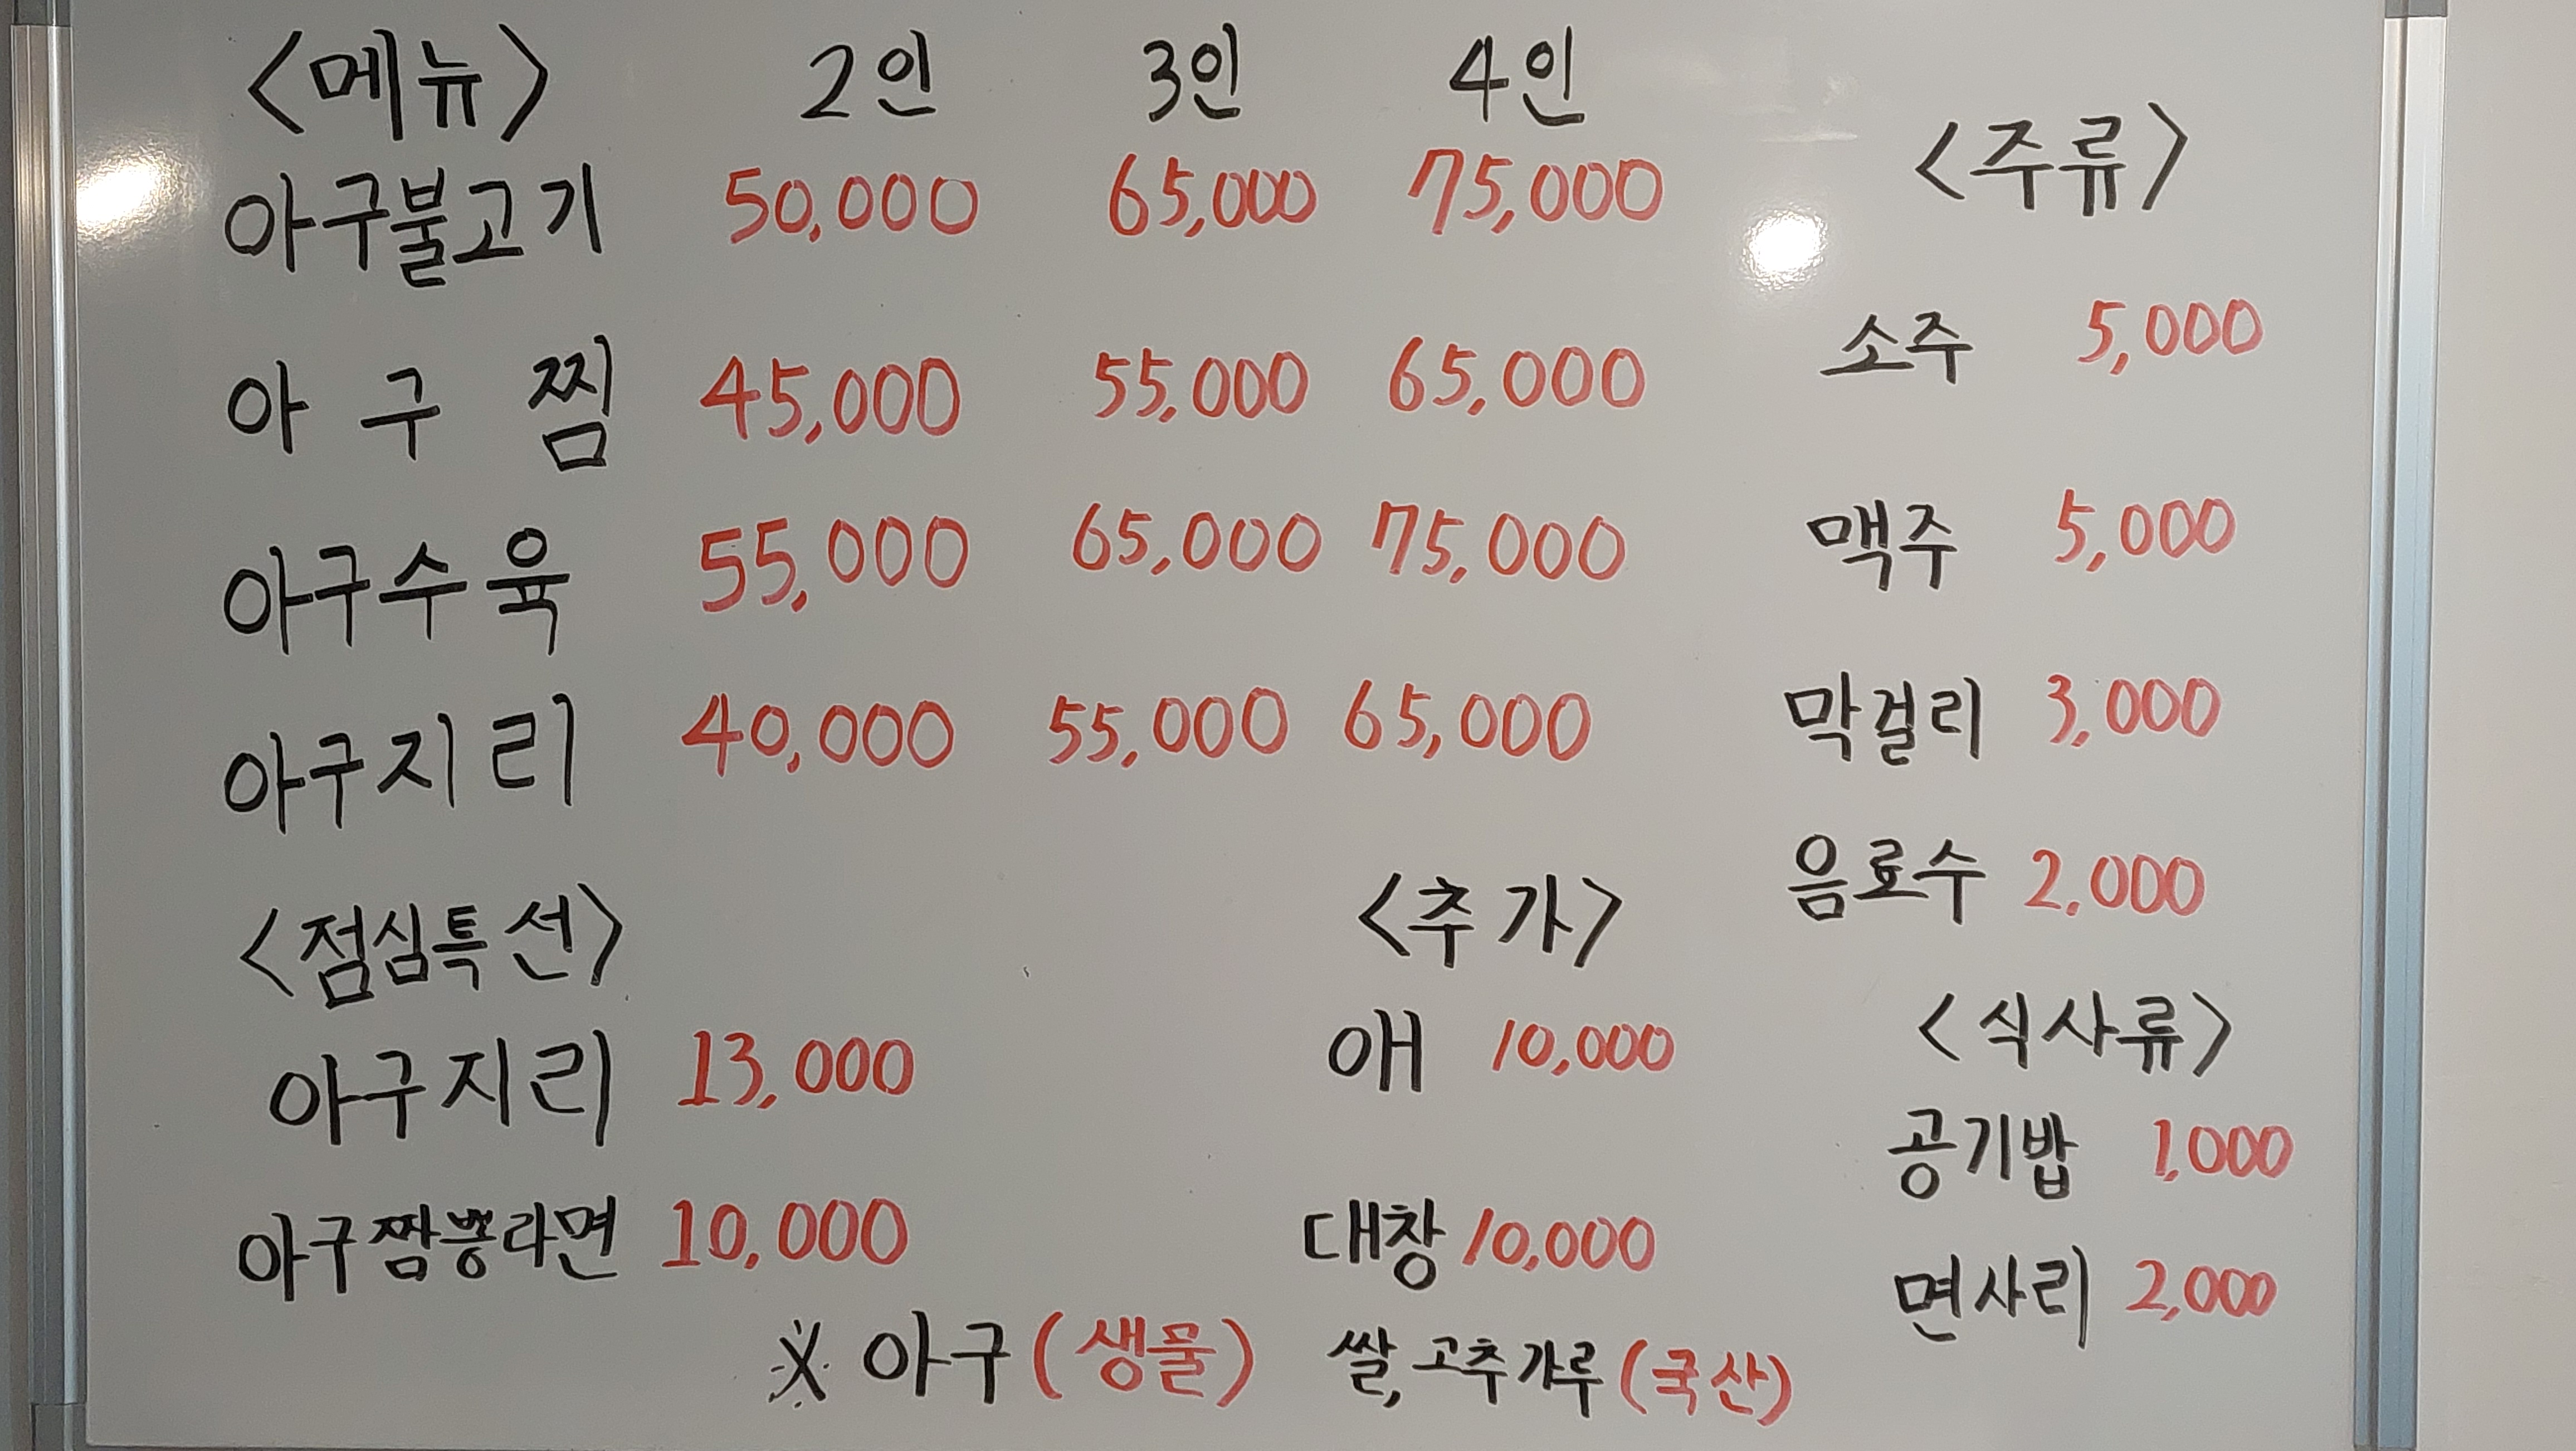 <메뉴> 2인 3인 4인
아구불고기 50,000 65,000 75,000
아구찜 45,000 55,000 65,000
아구수육 55,000 65,000 75,000
아구지리 40,000 55,000 65,000
<점심특선>
아구지리 13,000
아구짬뽕라면 10,000
<추가>
애 10,000
대창 10,000
<주류>
소주 5,000
맥주 5,000
막걸리 3,000
음료수 2.000
<식사류>
공기밥 1,000
면사리 2,000
※ 아구(생물) 쌀,고추가루(국산)